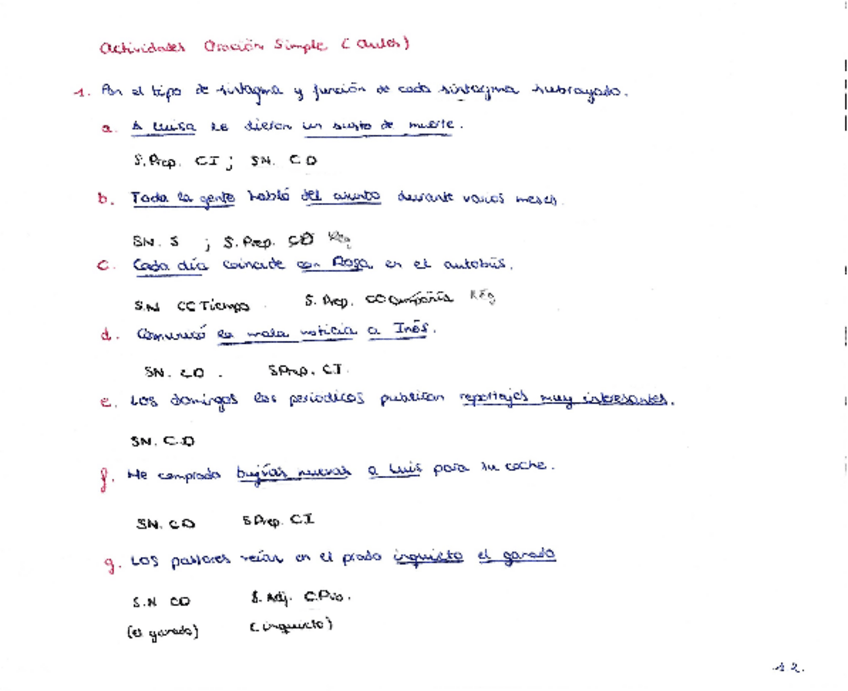 Actividades Oración Simple (aules)
1. Pon el tipo de sintagma y función de cada sintagma subrayado.
a. A Luisa le dieron un susto de muerte.
S.Prep. CI ; SN. CD
b. Toda la gente habló del asunto durante varios meses.
SN. S ; S.Prep. CD Reg
c. Cada día coincide con Rosa en el autobús.
S.N CC Tiempo S. Prep. CC Compañía Reg
d. Comunicó la mala noticia a Inés.
SN. CD . SPrep. CI
e. Los domingos los periodicos publican reportajes muy interesantes.
SN. C.D
f. He comprado bujías nuevas a Luis para su coche.
SN. CD SPrep. CI
g. Los pastores veían en el prado inquieto el ganado
S.N CD S. Adj. C.Pvo.
(el ganado) (inquieto)
12.